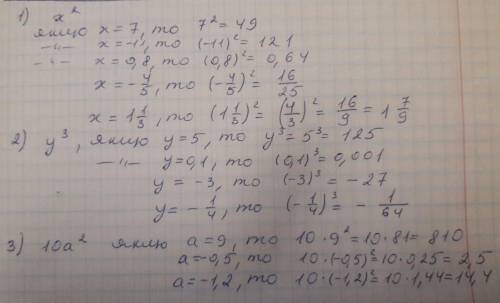 1) x²
якщо x = 7, то 7² = 49
–"– x = -11, то (-11)² = 121
–"– x = 0,8, то (0,8)² = 0,64
x = -4/5, то (-4/5)² = 16/25
x = 1 1/3, то (1 1/3)² = (4/3)² = 16/9 = 1 7/9
2) y³, якщо y = 5, то y³ = 5³ = 125
–"– y = 0,1, то (0,1)³ = 0,001
y = -3, то (-3)³ = -27
y = -1/4, то (-1/4)³ = -1/64
3) 10a² якщо a = 9, то 10·9² = 10·81 = 810
a = -0,5, то 10·(-0,5)² = 10·0,25 = 2,5
a = -1,2, то 10·(-1,2)² = 10·1,44 = 14,4